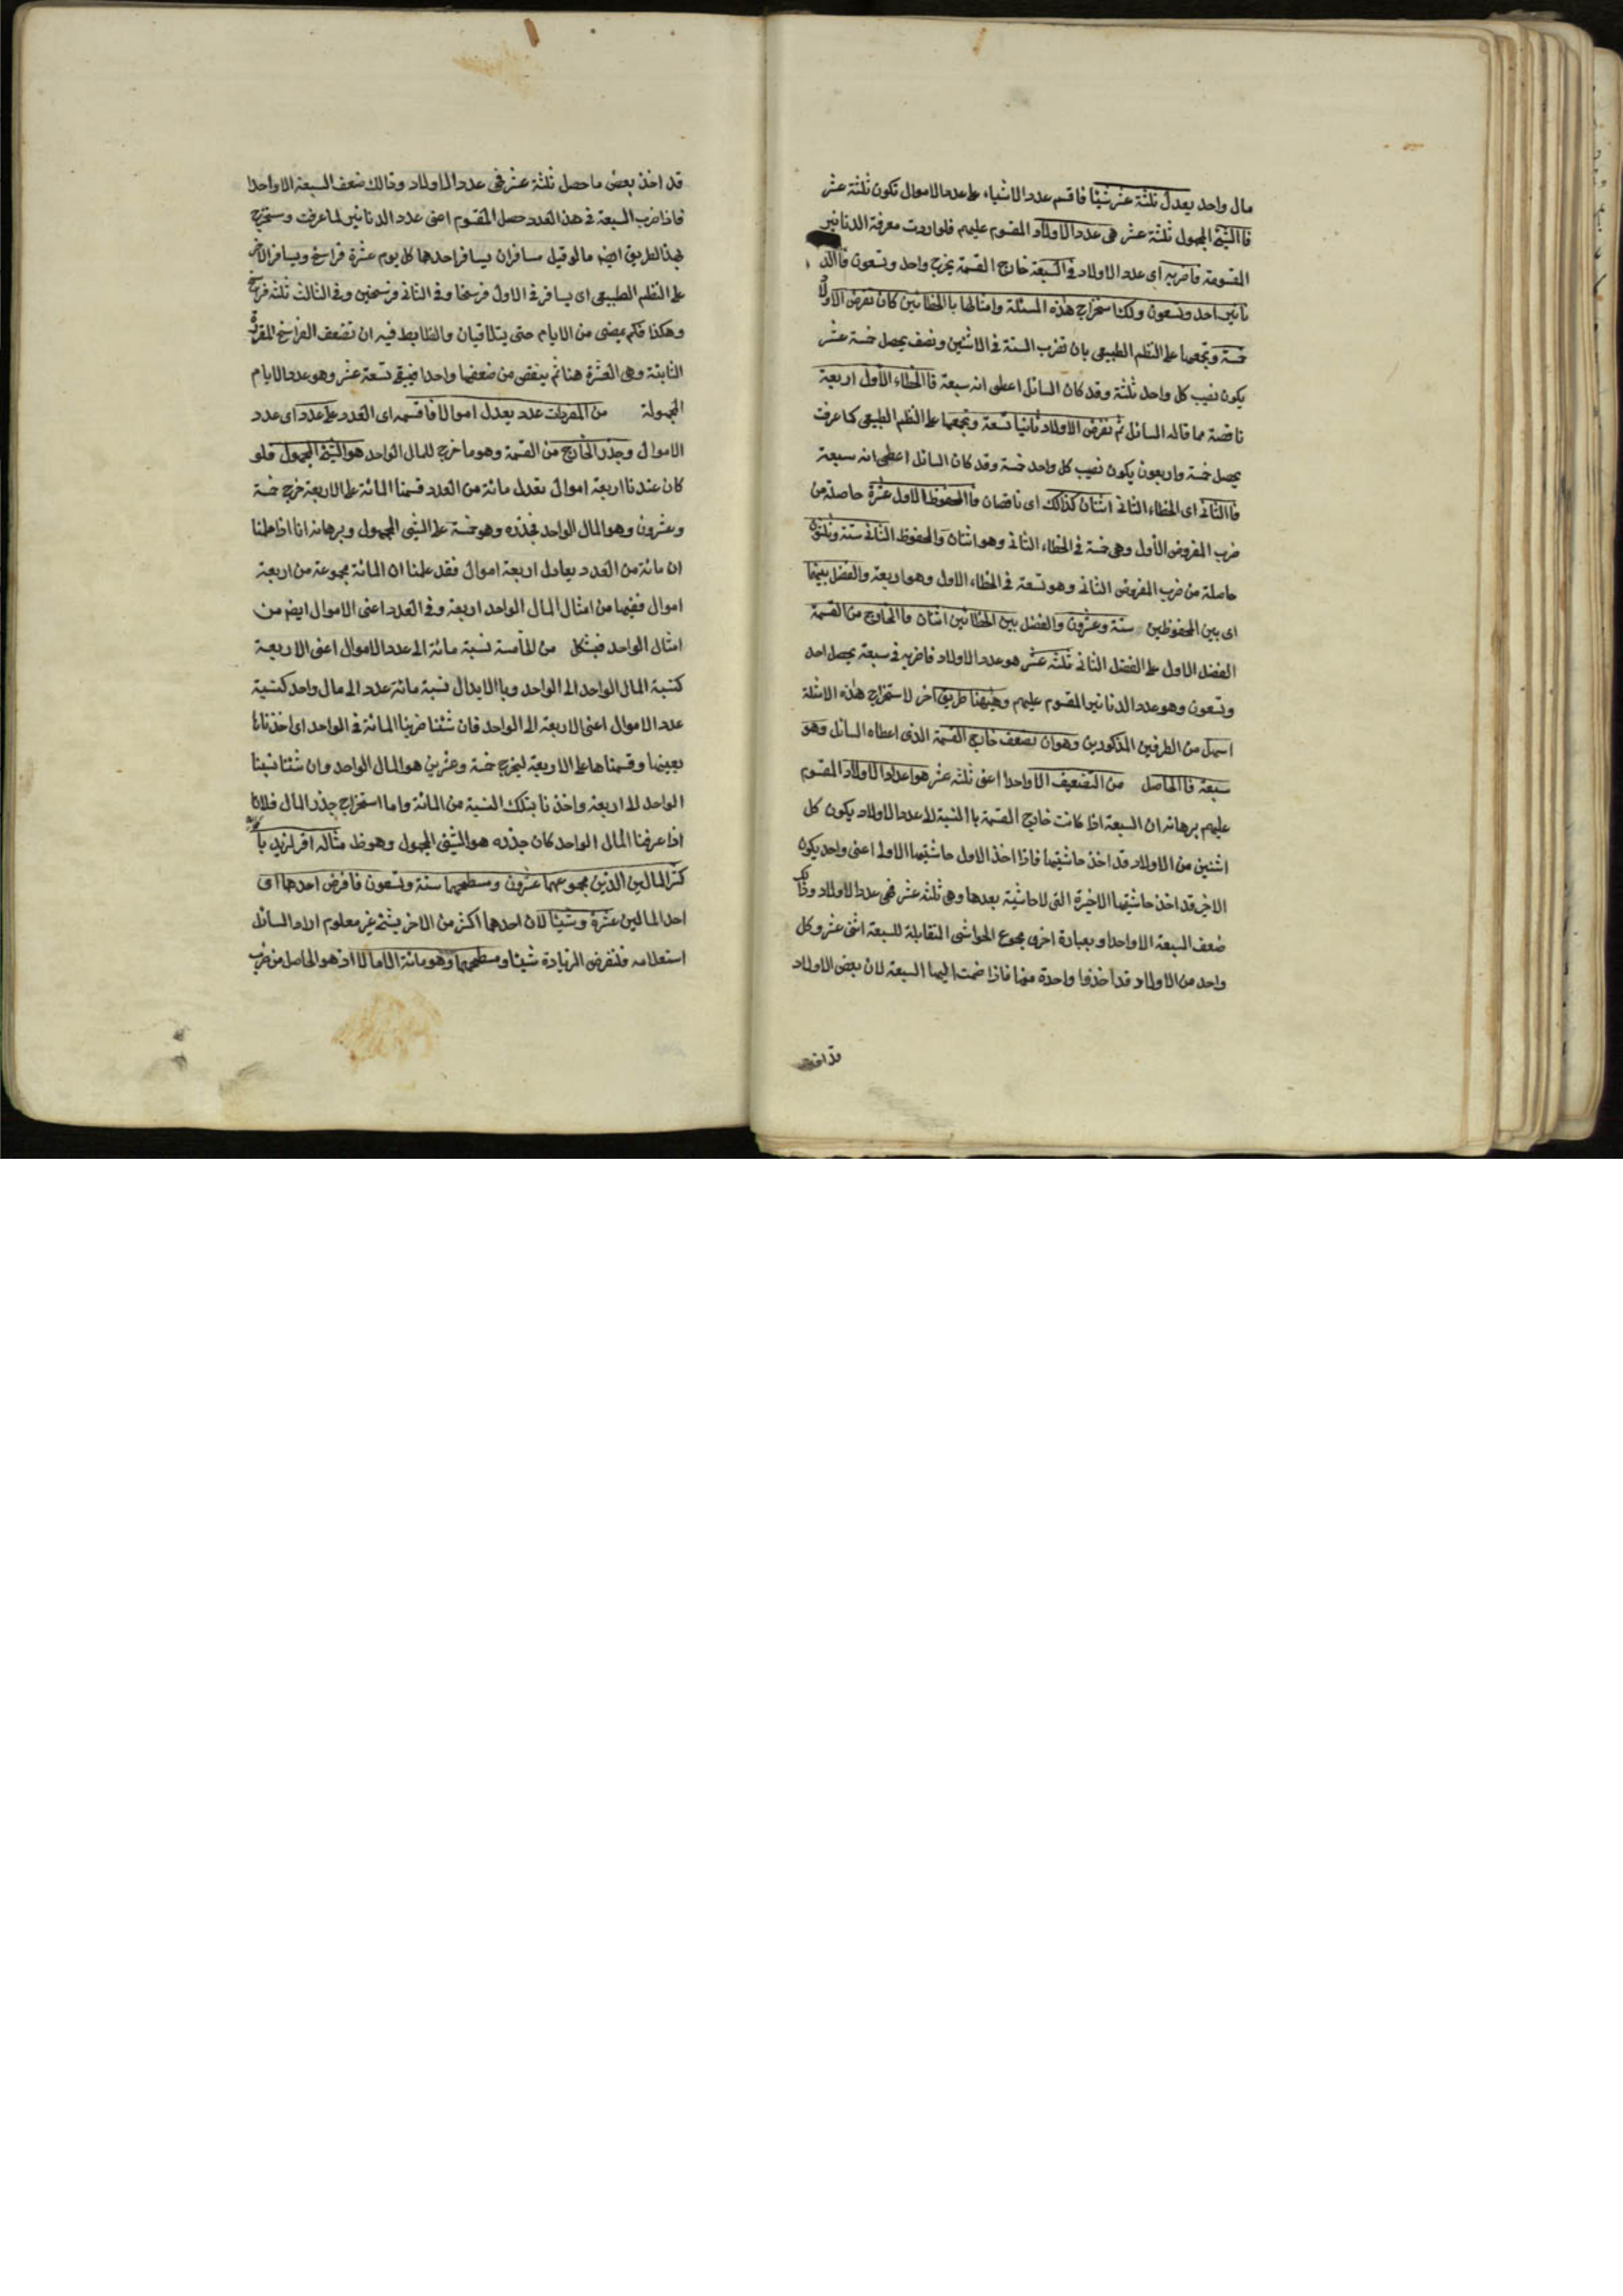 مال واحد يعدل ثلثة عشر شيئا فاقسم عدد الاشياء على عدد الاموال تكون ثلثة عشر
فاالشئ المجهول ثلثة عشر هى عدد الاولاد المقسوم عليهم فلو اردت معرفة الدنانير
المقسومة فاضربه اى عدد الاولاد فى السبعة خارج القسمة يخرج واحد وتسعون فاالد
نانير احد وتسعون ولك استخراج هذه المسئلة وامثالها باالخطائين كان تفرض الاولاد
خمسة وتجمعها على النظم الطبيعى بان تضرب الستة فى الاثنين ونصف يحصل خمسة عشر
يكون نصيب كل واحد ثلثة وقد كان السائل اعطى انه سبعة فاالخطاء الاول اربعة
ناقصة مما قاله السائل ثم تفرض الاولاد ثانيا تسعة وتجمعها على النظم الطبيعى كما عرفت
يحصل خمسة واربعون يكون نصيب كل واحد خمسة وقد كان السائل اعطى انه سبعة
فاالثانى اى الخطاء الثانى اثنان كذالك اى ناقصان فاالمحفوظ الاول عشرة حاصلة من
ضرب المفروض الاول وهى خمسة فى الخطاء الثانى وهو اثنان والمحفوظ الثانى ستة وثلثون
حاصلة من ضرب المفروض الثانى وهو تسعة فى الخطاء الاول وهو اربعة والفضل بينهما
اى بين المحفوظين ستة وعشرون والفضل بين الخطائين اثنان فاالخارج من القسمة
الفضل الاول على الفضل الثانى ثلثة عشر هو عدد الاولاد فاضربه فى سبعة يحصل احد
وتسعون وهو عدد الدنانير المقسوم عليهم وهيهنا طريق اخر لاستخراج هذه الامثلة
اسهل من الطرفين المذكورين وهو ان تضعف خارج القسمة الذى اعطاه السائل وهو
سبعة فاالحاصل من التضعيف الا واحدا اعنى ثلثة عشر هو اعداد الاولاد المقسوم
عليهم برهانه ان السبعة اذا كانت خارج القسمة باالنسبة الى عدد الاولاد يكون كل
اثنين من الاولاد قد اخذ حاشيتيها فاذا اخذ الاول حاشيتها الاولى اعنى واحد يكون
الاخر قد اخذ حاشيتها الاخيرة التى لا حاشية بعدها وهى ثلثة عشر فهى عدد الاولاد وذالك
ضعف السبعة الا واحدا وبعبارة اخرى مجموع الحواشى المتقابلة للسبعة اثنى عشر وكل
واحد من الاولاد قد اخذوا واحدة منها فاذا ضمت اليها السبعة لان بعض الاولاد
قد اخذ
قد اخذ بعض ما حصل ثلثة عشر فهى عدد الاولاد وذالك ضعف السبعة الا واحدا
فاذا ضرب السبعة فى هذا العدد حصل المقسوم اعنى عدد الدنانير لما عرفت وستخرج
بهذا الطريق ايضا ما لو قيل مسافران يسافر احدهما كل يوم عشرة فراسخ ويسافر الاخر
على النظم الطبيعى اى يسافر فى الاول فرسخا وفى الثانى فرسخين وفى الثالث ثلثة فرسخ
وهكذا فكم يمضى من الايام حتى يتلاقيان والظابط فيه ان تضعف الفراسخ المقررة
الثابتة وهى العشرة هنا ثم ينقص من ضعفها واحدا فيبقى تسعة عشر وهو عدد الايام
المجهولة من المفردات عدد يعدل اموالا فاقسمه اى العدد على عدد اى عدد
الاموال وجذر الخارج من القسمة وهو ما خرج للمال الواحد هو الشئ المجهول فلو
كان عندنا اربعة اموال تعدل مائة من العدد قسمنا المائة على الاربعة خرج خمسة
وعشرون وهو المال الواحد فجذره وهو خمسة على الشئى المجهول وبرهانه انا اذا علمنا
ان مائة من العدد يعادل اربعة اموال فقد علمنا ان المائة مجموعة من اربعة
اموال ففيها من امثال المال الواحد اربعة وفى العدد اعنى الاموال ايضا من
امثال الواحد فبشكل من الخامسة نسبة مائة الى عدد الاموال اعنى الاربعة
كنسبة المال الواحد الى الواحد وباالابدال نسبة مائة عدد الى مال واحد كنسبة
عدد الاموال اعنى الاربعة الى الواحد فان شئنا ضربنا المائة فى الواحد اى اخذناها
بعينها وقسمناها على الاربعة ليخرج خمسة وعشرين هو المال الواحد وان شئنا نسبنا
الواحد الى اربعة واخذنا بتلك النسبة من المائة واما استخراج جذر المال فلانا
اذا عرفنا المال الواحد كان جذره هو الشئى المجهول وهو ظ مثاله اقر لزيد باا
كثر المالين الذين مجموعهما عشرون ومسطحهما ستة وتسعون فافرض احدهما اى
احد المالين عشرة وشيئا لان احدهما اكثر من الاخر بشئ غير معلوم اراد السائل
استعلامه فلنفرض الزيادة شيئا ومسطحهما وهو مائة الا مالا اذ هو الحاصل من ضرب